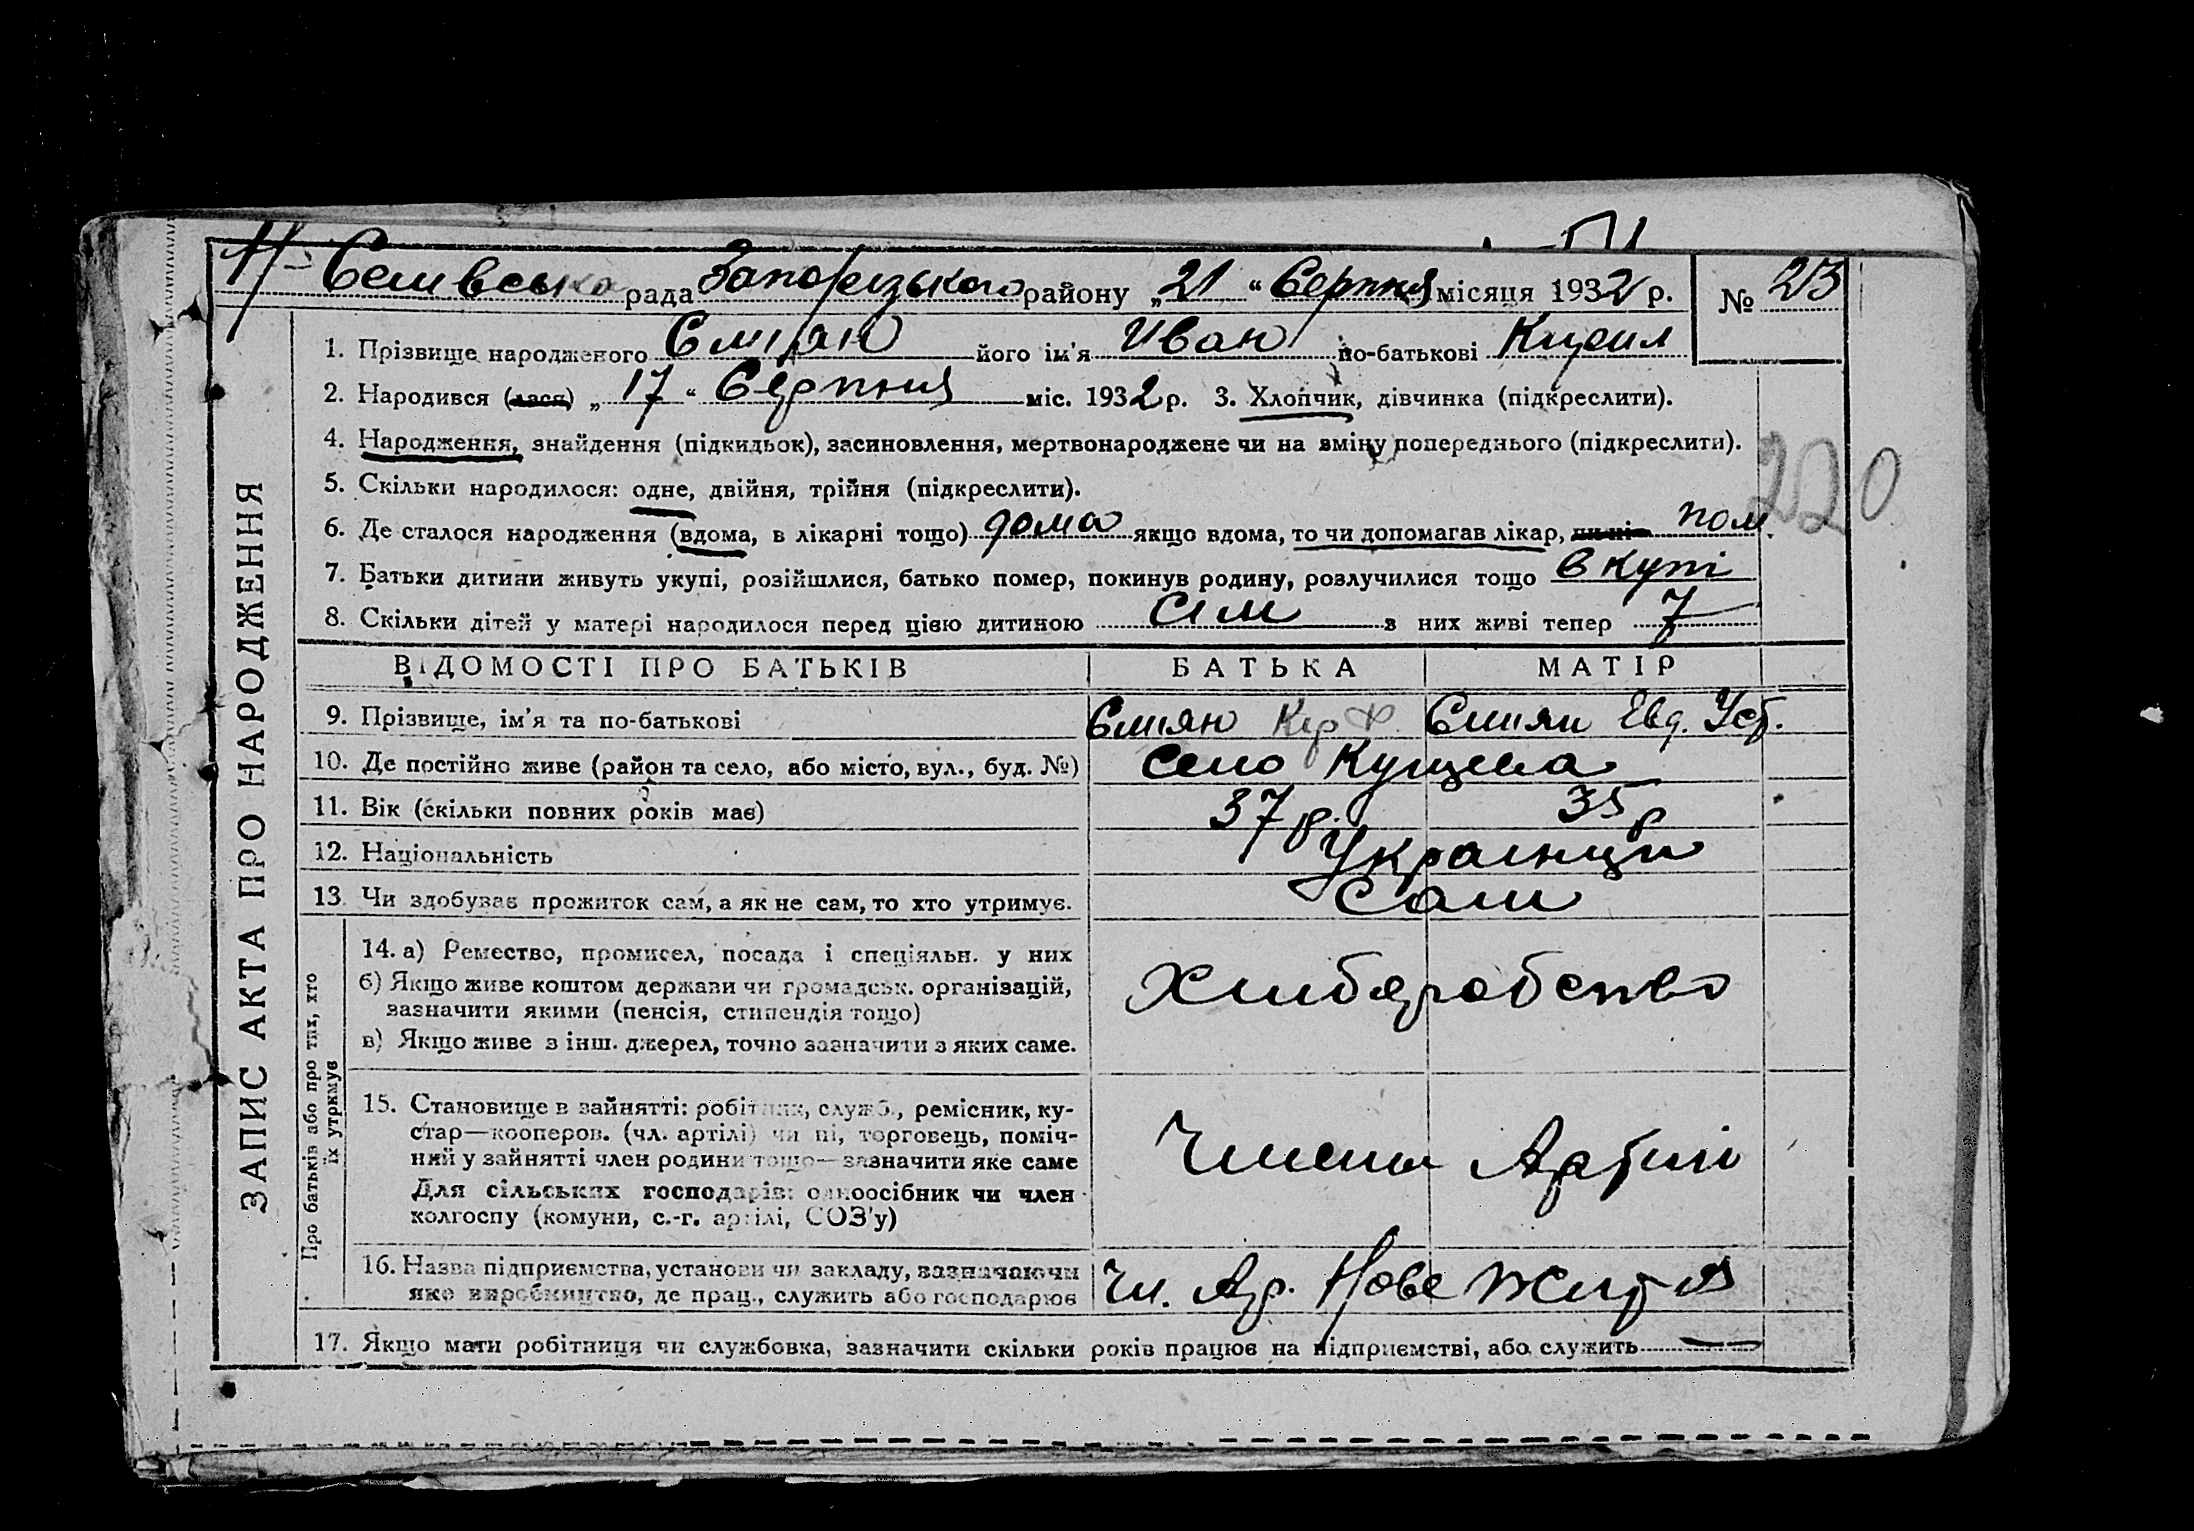 Н-Селівська рада Запорізького району „21“ Серпня місяця 1932 р. № 23
1. Прізвище народженого Єміян його ім'я Иван по-батькові Кирил
2. Народився (лася) „17“ Серпня міс. 1932 р. 3. Хлопчик, дівчинка (підкреслити).
4. Народження, знайдення (підкидьок), засиновлення, мертвонароджене чи на зміну попереднього (підкреслити).
220
5. Скільки народилося: одне, двійня, трійня (підкреслити).
6. Де сталося народження (вдома, в лікарні тощо) дома якщо вдома, то чи допомагав лікар, чи ні пом.
7. Батьки дитини живуть укупі, розійшлися, батько помер, покинув родину, розлучилися тощо в купі
8. Скільки дітей у матері народилося перед цією дитиною сім з них живі тепер 7
ВІДОМОСТІ ПРО БАТЬКІВ БАТЬКА МАТІР
9. Прізвище, ім'я та по-батькові Єміян Кир Ф. Єміян Евд. Уст.
10. Де постійно живе (район та село, або місто, вул., буд. №) село Кущева
11. Вік (скільки повних років має) 37 р. 35 р
12. Національність Украінци
13. Чи здобуває прожиток сам, а як не сам, то хто утримує. Сами
14. а) Ремество, промисел, посада і спеціяльн. у них
б) Якщо живе коштом держави чи громадськ. організацій,
зазначити якими (пенсія, стипендія тощо)
Хлибаробство
в) Якщо живе з інш. джерел, точно зазначити з яких саме.
15. Становище в зайнятті: робітник, служб., ремісник, ку-
стар—кооперов. (чл. артілі) чи ні, торговець, поміч-
ний у зайнятті член родини тощо—зазначити яке саме
Члены Артілі
Для сільських господарів: одноосібник чи член
колгоспу (комуни, с.-г. артілі, СОЗ'у)
16. Назва підприємства, установи чи закладу, зазначаючи
яке виробництво, де прац., служить або господарює
Чл. Ар. Нове Життя
17. Якщо мати робітниця чи службовка, зазначити скільки років працює на підприємстві, або служить —
ЗАПИС АКТА ПРО НАРОДЖЕННЯ
Про батьків або про тих, хто
їх утримує